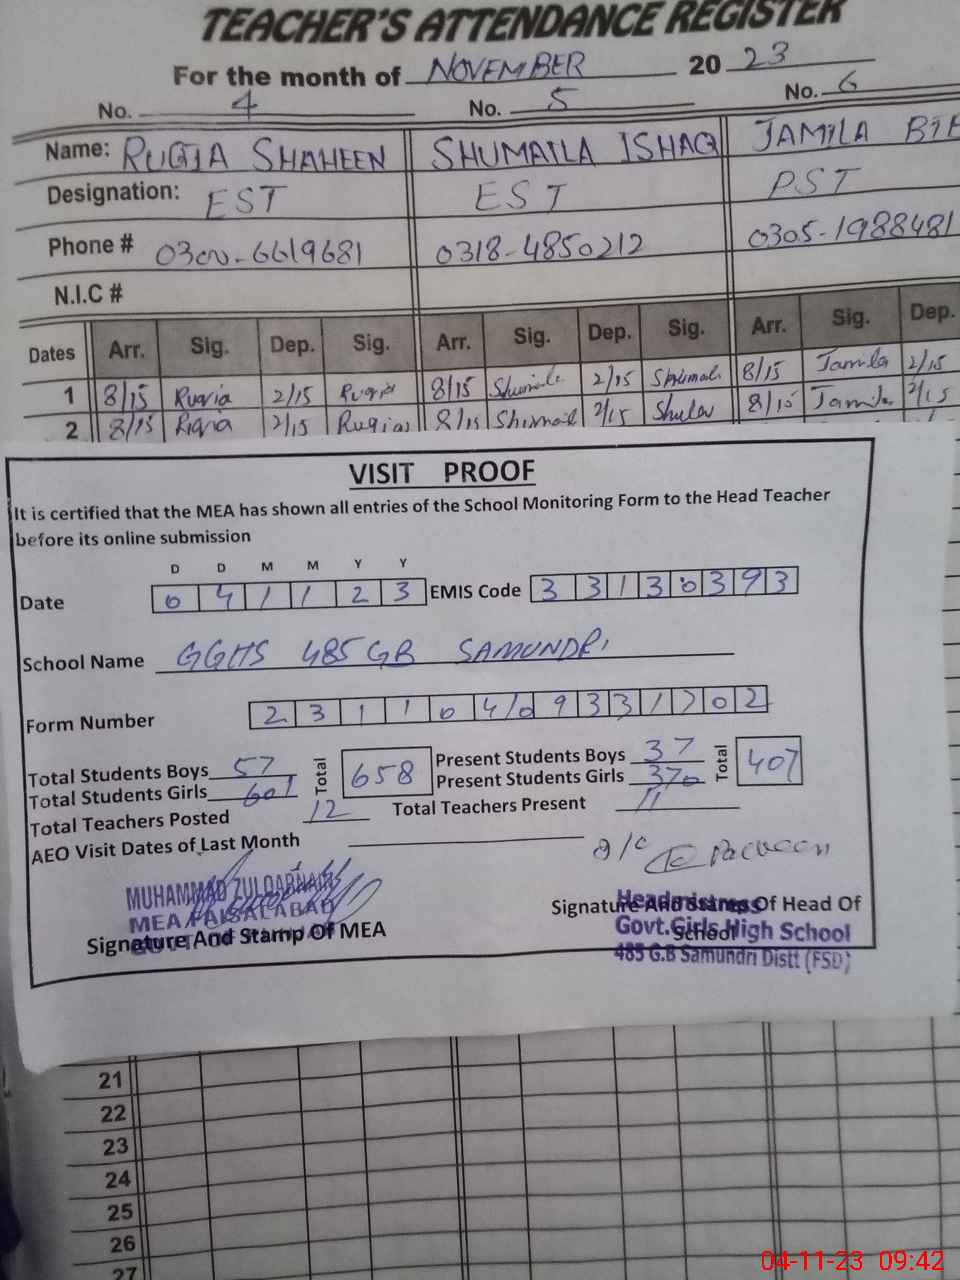 TEACHER'S ATTENDANCE REGISTER
For the month of NOVEMBER 20 23
No. 4 No. 5 No. 6
Name: RUQIA SHAHEEN SHUMAILA ISHAQ JAMILA
Designation: EST EST PST
Phone # 0300-6619681 0318-4850212 0305-1988481
N.I.C #
Dates Arr. Sig. Dep. Sig. Arr. Sig. Dep. Sig. Arr. Sig. Dep.
1 8/15 Ruqia 2/15 Ruqia 8/15 2/15 8/15 Jamila 2/15
2 8/15 2/15 8/15 2/15 8/15 Jamila 2/15
VISIT PROOF
It is certified that the MEA has shown all entries of the School Monitoring Form to the Head Teacher
before its online submission
D D M M Y Y
Date 0 4 1 1 2 3 EMIS Code 3 3 1 3 0 3 9 3
School Name GGHS 485 GB SAMUNDRI
Form Number 2 3 1 1 0 4 0 9 3 3 1 7 0 2
Total Students Boys 57 Total 658 Present Students Boys 37 Total 407
Total Students Girls 601 Present Students Girls 370
Total Teachers Posted 12 Total Teachers Present 11
AEO Visit Dates of Last Month
MUHAMMAD ZULQARNAIN
MEA FAISALABAD
Signature And Stamp Of MEA
Signature And Stamp Of Head Of
School
Headmistress
Govt.Girls High School
485 G.B Samundri Distt (FSD)
21
22
23
24
25
26
27
04-11-23 09:42